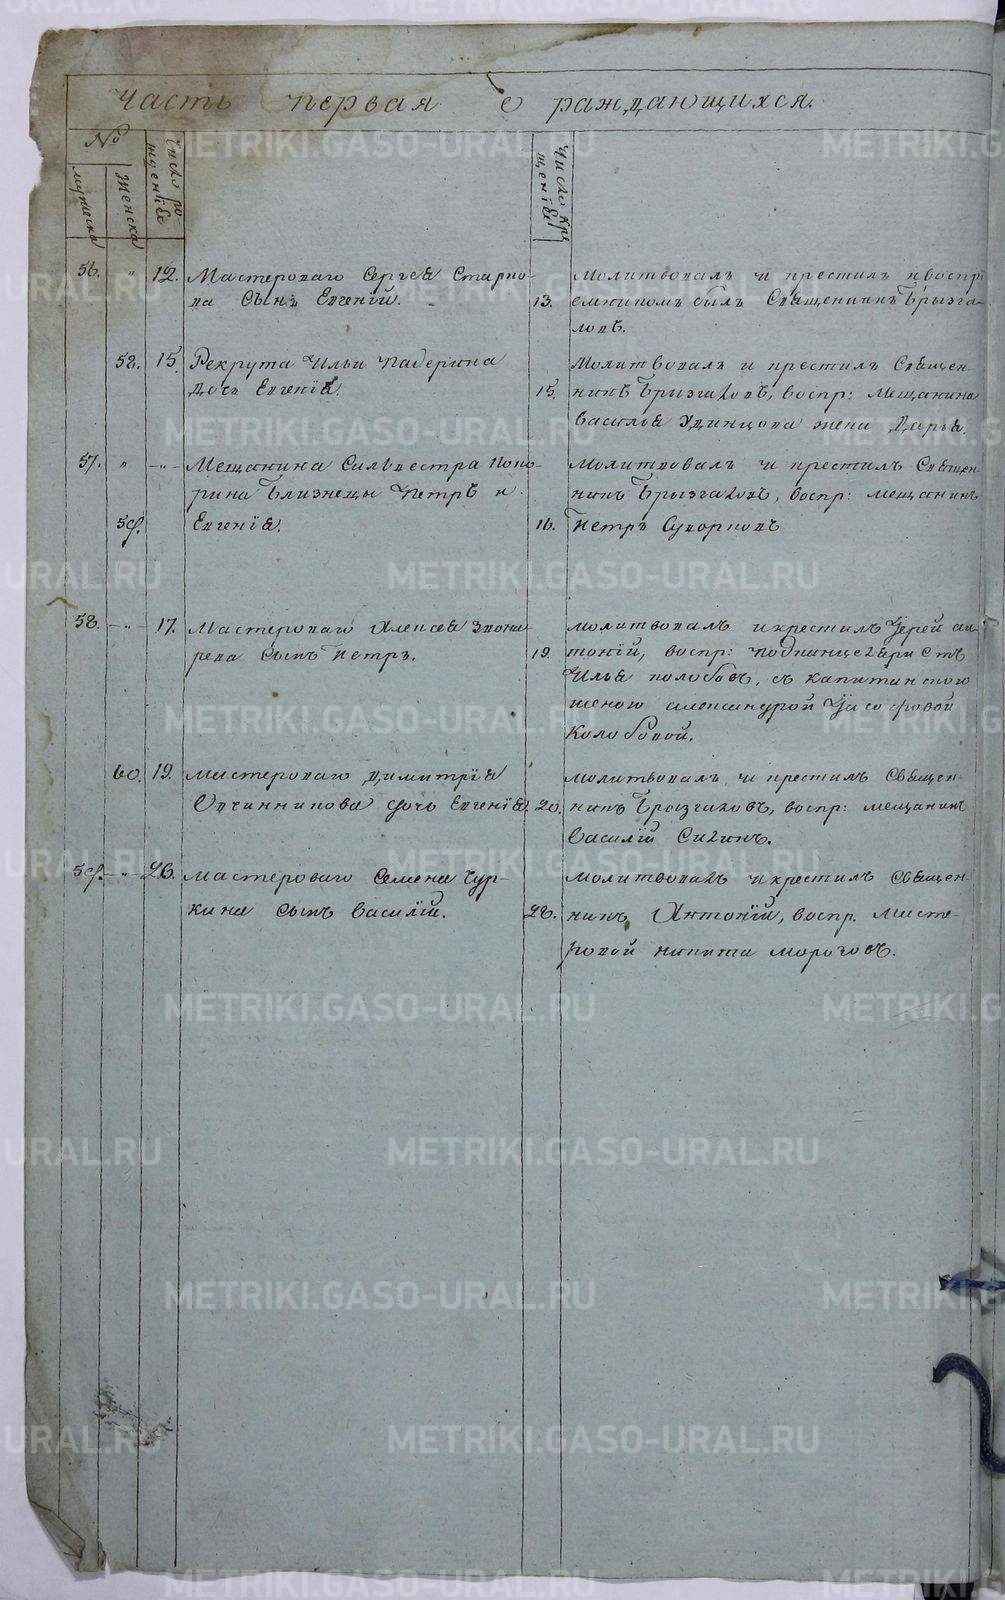 Часть первая о раждающихся.
№
мужеска
женска
Число рожденiя
Число крещенiя
56. " 12. Мастероваго Сергея Старко-
ва Сынъ Евгенiй.
13.
Молитвовалъ и крестилъ и воспрi
емникомъ былъ Священникъ Брызга-
ловъ.
58. 15. Рекрута Ильи Падерина
дочь Евгенiя.
15.
Молитвовалъ и крестилъ Священ-
никъ Брызгаловъ, воспр: Мещанина
Василья Удинцова жена Дарья.
57. " -"- Мещанина Сильвестра Попо-
рина Близнецы Петръ и
59. Евгенiя.
16.
Молитвовалъ и крестилъ Священ-
никъ Брызгаловъ, воспр: мещанинъ
Петръ Суворковъ
58. -"- 17. Мастероваго Алексея Звона-
рева сынъ Петръ.
19.
молитвовалъ и крестилъ Iерей ан-
тонiй, воспр: подканцеляристъ
Илья колобовъ, съ капитанскою
женою александрой
Колобовой.
60. 19. мастероваго Димитрiя
Овчинникова дочь Евгенiя.
20.
молитвовалъ и крестилъ Священ-
никъ Брызгаловъ, воспр: мещанинъ
Василiй Силинъ.
59. -"- 26. мастероваго Семена Чур-
кина сынъ Василiй.
28.
молитвовалъ и крестилъ Священ-
никъ Антонiй, воспр. Масте-
ровой никита морозовъ.
METRIKI.GASO-URAL.RU